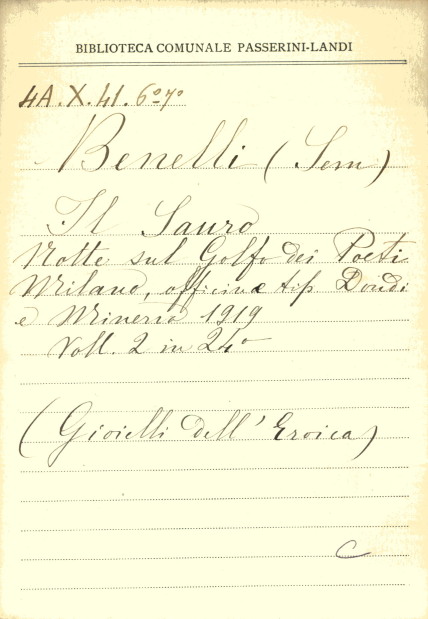 BIBLIOTECA COMUNALE PASSERINI-LANDI
4A.X.41.6º7º
Benelli (Sem)
Il Sauro
Notte sul Golfo dei Poeti
Milano, officine tip Dondi
e Minerva 1919
Voll. 2 in 24º
(Gioielli dell'Eroica)
C